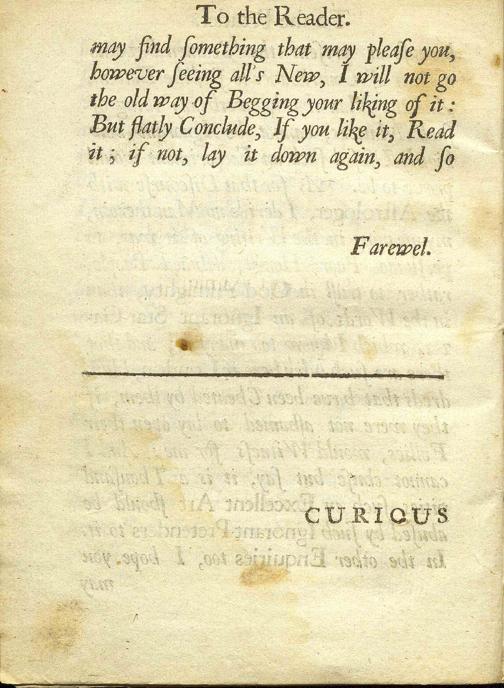 To the Reader.
may find ſomething that may pleaſe you,
however ſeeing all's New, I will not go
the old way of Begging your liking of it :
But flatly Conclude, If you like it, Read
it ; if not, lay it down again, and ſo
Farewel.
CURIOUS